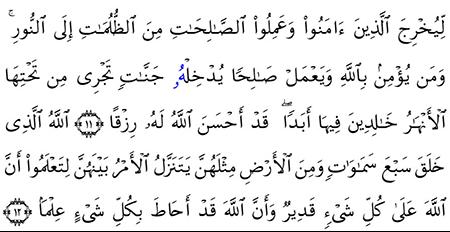 لِّيُخْرِجَ ٱلَّذِينَ ءَامَنُوا۟ وَعَمِلُوا۟ ٱلصَّـٰلِحَـٰتِ مِنَ ٱلظُّلُمَـٰتِ إِلَى ٱلنُّورِ ۚ
وَمَن يُؤْمِنۢ بِٱللَّهِ وَيَعْمَلْ صَـٰلِحًا يُدْخِلْهُ جَنَّـٰتٍ تَجْرِى مِن تَحْتِهَا
ٱلْأَنْهَـٰرُ خَـٰلِدِينَ فِيهَآ أَبَدًا ۖ قَدْ أَحْسَنَ ٱللَّهُ لَهُۥ رِزْقًا ﴿١١﴾ ٱللَّهُ ٱلَّذِى
خَلَقَ سَبْعَ سَمَـٰوَٰتٍ وَمِنَ ٱلْأَرْضِ مِثْلَهُنَّ يَتَنَزَّلُ ٱلْأَمْرُ بَيْنَهُنَّ لِتَعْلَمُوٓا۟ أَنَّ
ٱللَّهَ عَلَىٰ كُلِّ شَىْءٍ قَدِيرٌ وَأَنَّ ٱللَّهَ قَدْ أَحَاطَ بِكُلِّ شَىْءٍ عِلْمًۢا ﴿١٢﴾